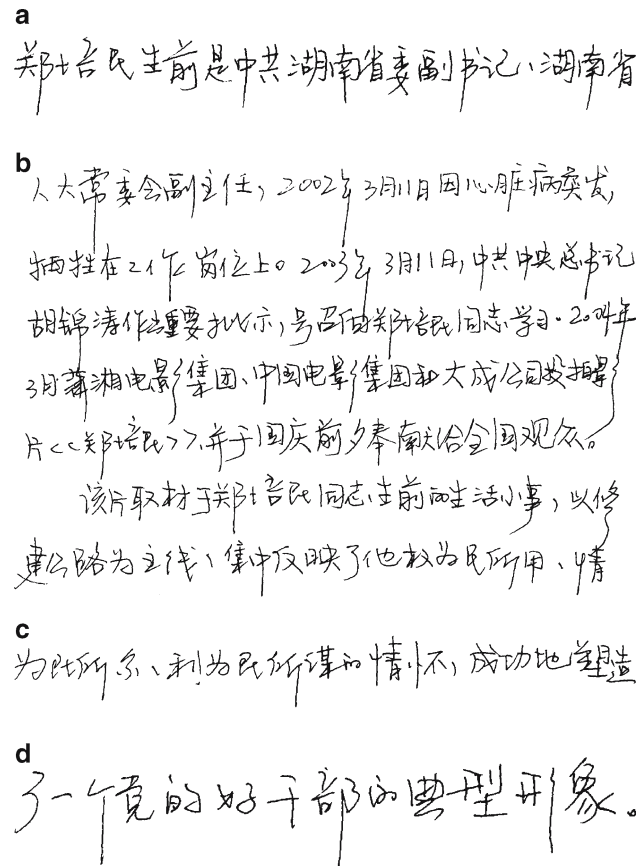 a
郑培民生前是中共湖南省委副书记、湖南省
b
人大常委会副主任，2002年3月11日因心脏病突发，
牺牲在工作岗位上。2003年3月11日，中共中央总书记
胡锦涛作出重要批示，号召向郑培民同志学习。2004年
3月潇湘电影集团、中国电影集团和大成公司投拍影
片<<郑培民>>，并于国庆前夕奉献给全国观众。
该片取材于郑培民同志生前的生活小事，以修
建公路为主线，集中反映了他权为民所用、情
c
为民所系、利为民所谋的情怀，成功地塑造
d
了一个党的好干部的典型形象。